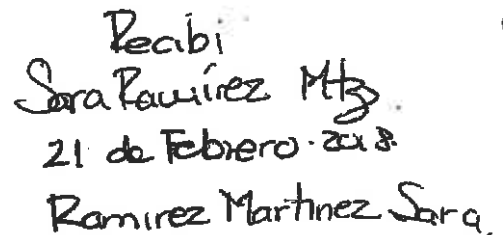 Recibi
Sara Ramírez Mtz
21 de Febrero. 2018.
Ramirez Martinez Sara